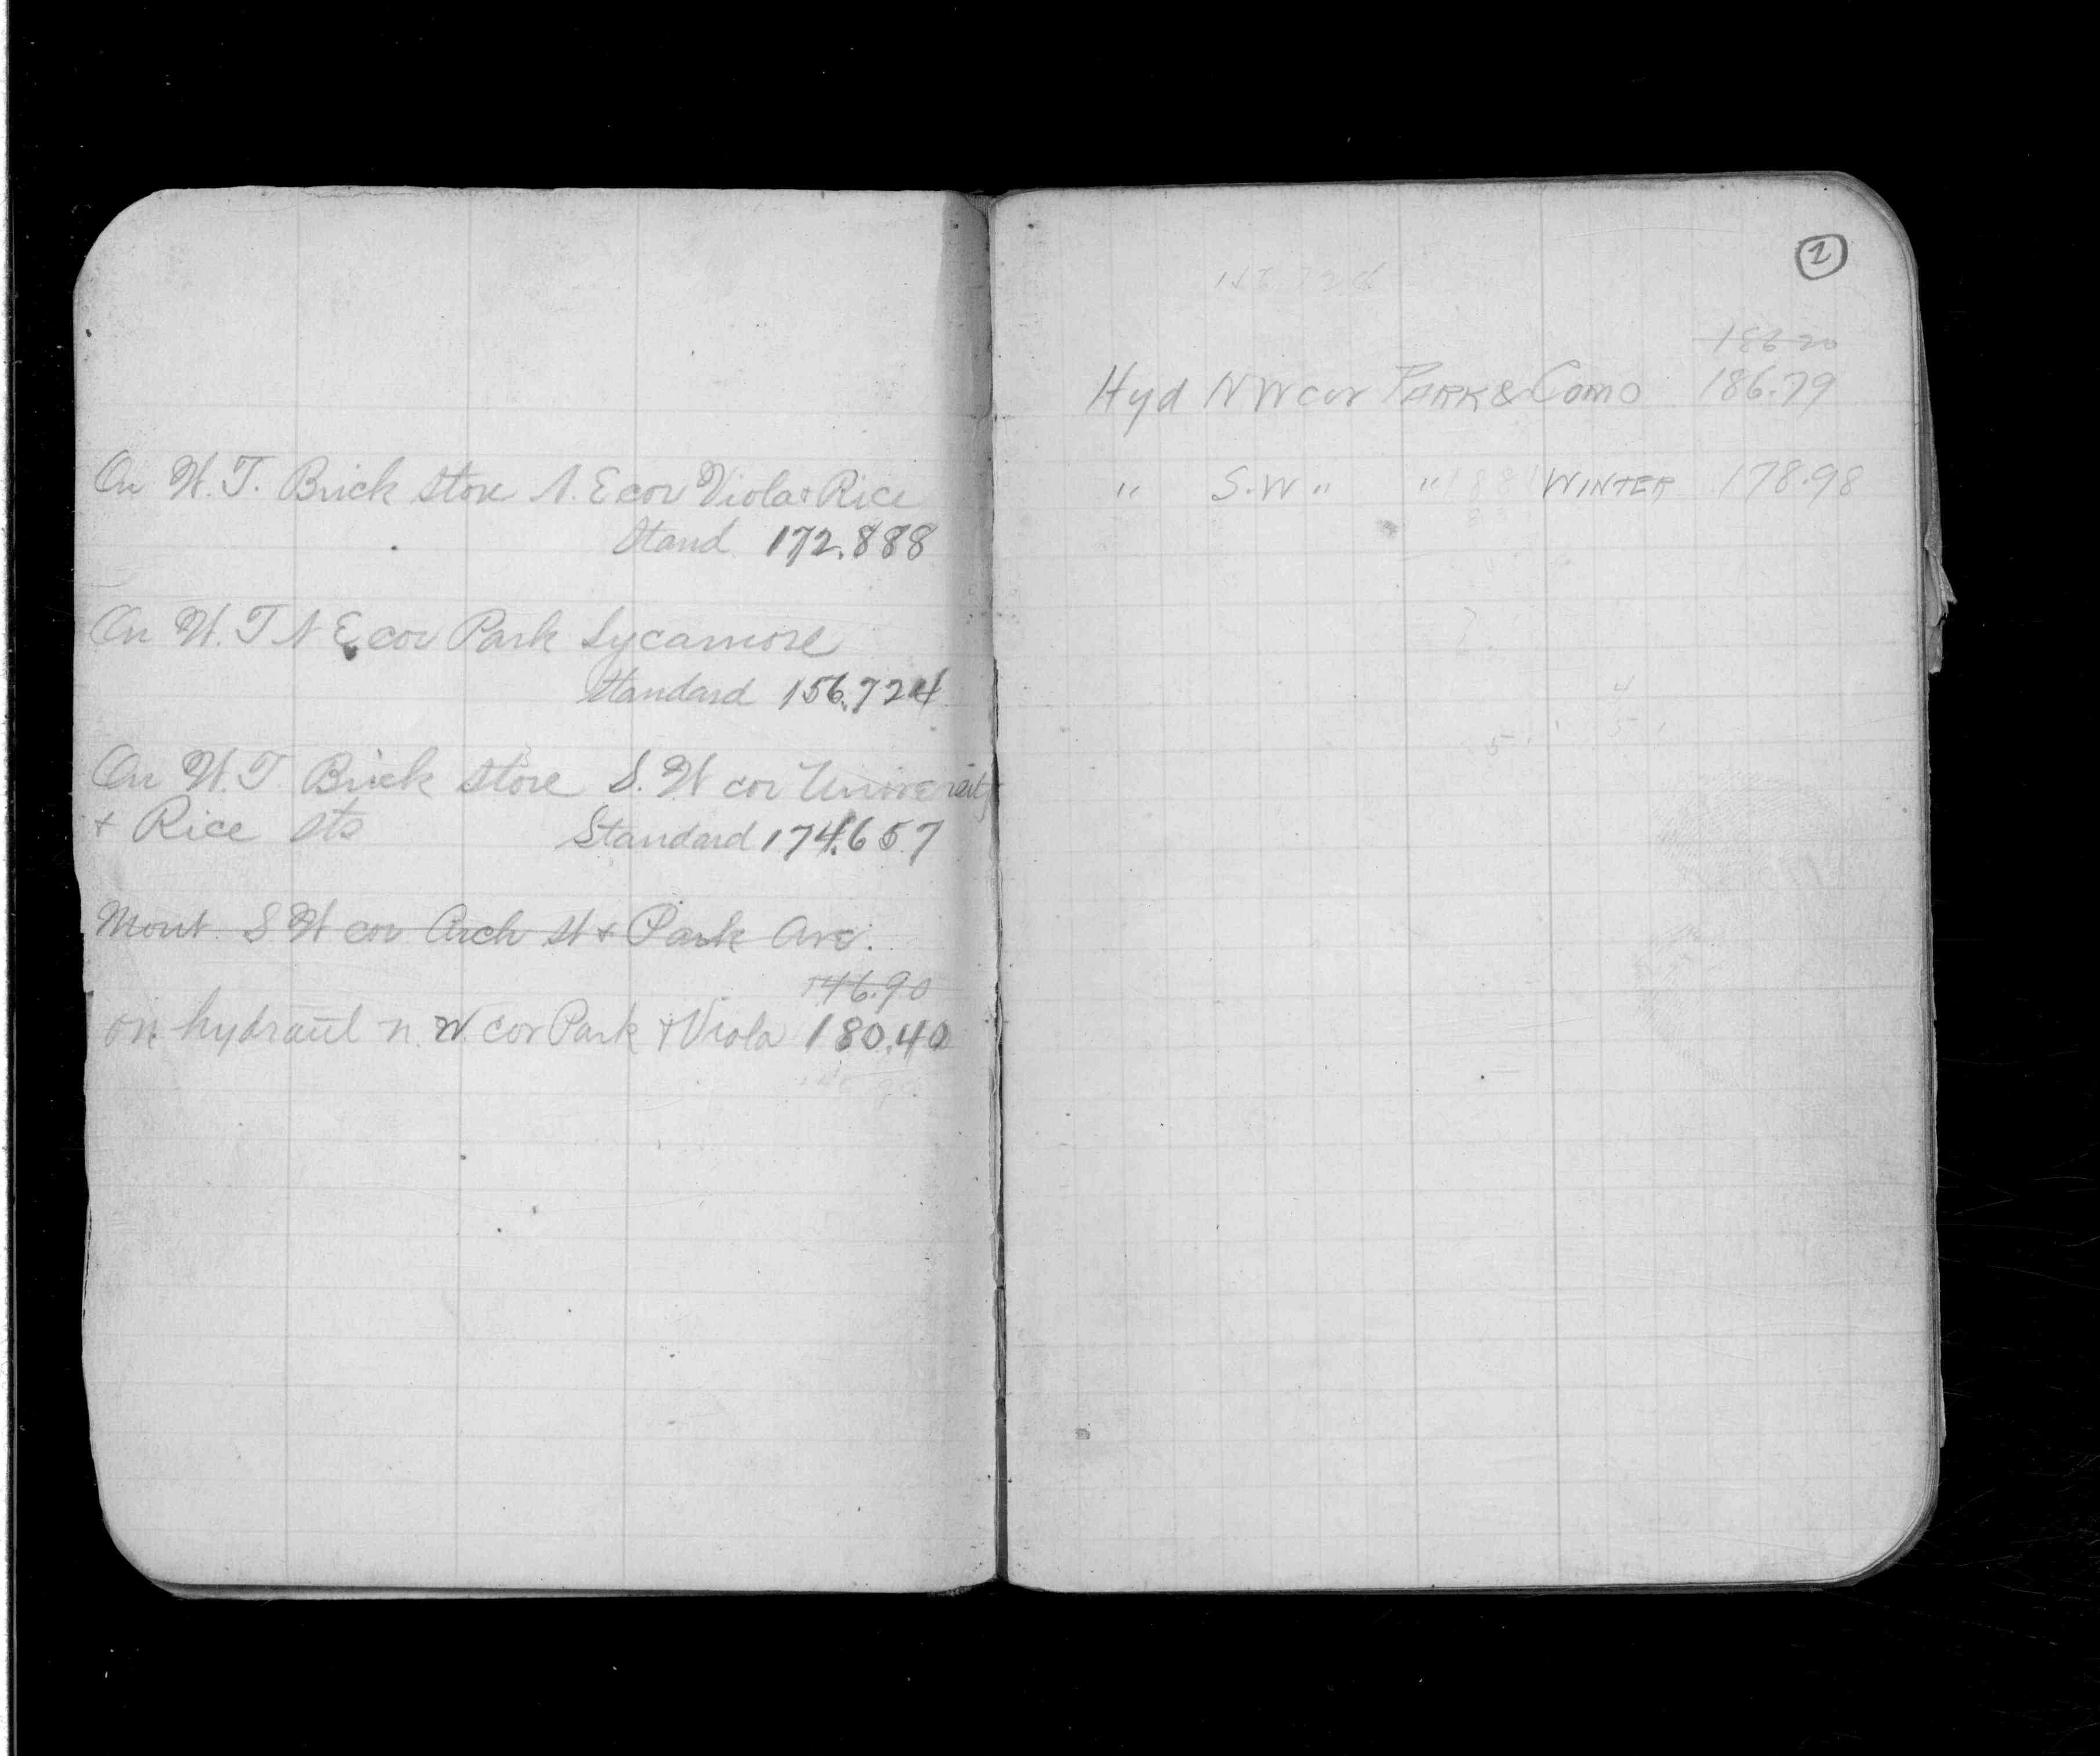 On W.T. Brick store N.E cor Viola & Rice
Stand. 172.888
On W.T N E cor Park Sycamore
Standard 156.724
On W.T Brick store S.W cor University
& Rice sts Standard 174.657
Mont S W cor Arch st & Park Ave.
146.90
on hydraul n. W. cor Park & Viola 180.40
2
156.724
186.20
Hyd N W cor PARK & COMO 186.79
" S.W " " WINTER 178.98